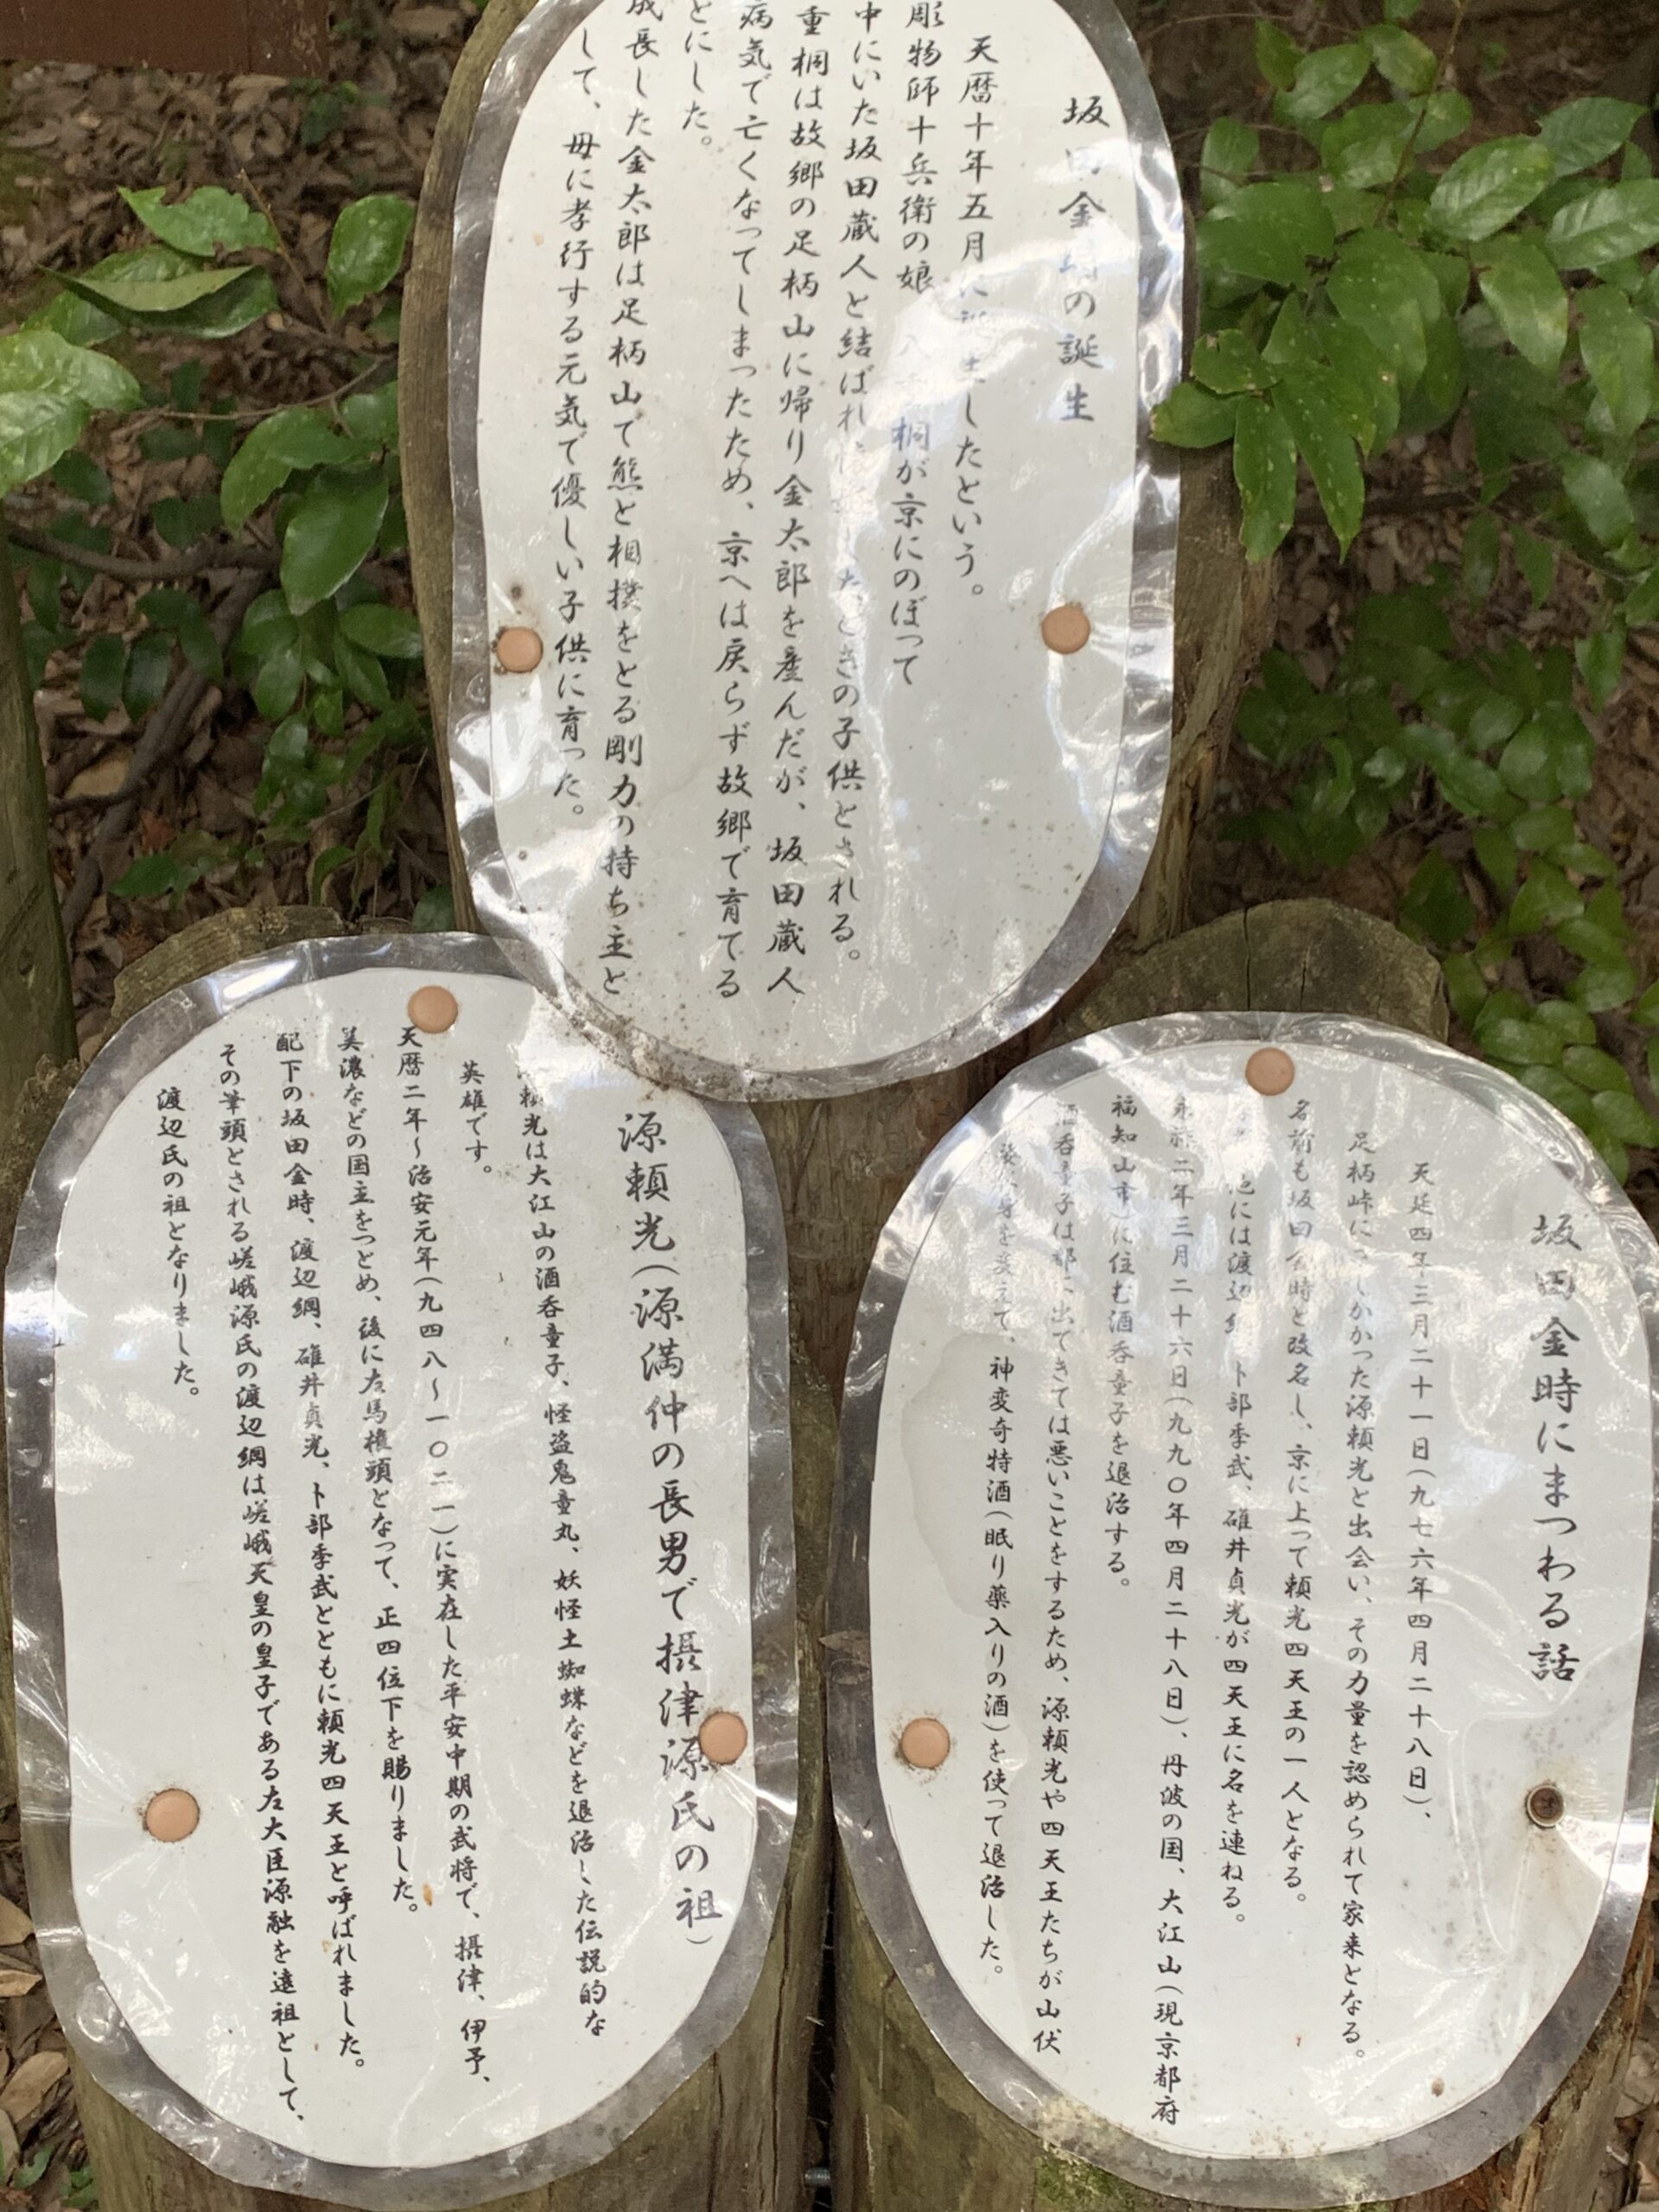 坂田金時の誕生
天暦十年五月に誕生したという。
彫物師十兵衛の娘 桐が京にのぼって
中にいた坂田蔵人と結ばれ たときの子供とされる。
重桐は故郷の足柄山に帰り金太郎を産んだが、坂田蔵人
病気で亡くなってしまったため、京へは戻らず故郷で育てる
とにした。
成長した金太郎は足柄山で熊と相撲をとる剛力の持ち主と
して、母に孝行する元気で優しい子供に育った。
坂田金時にまつわる話
天延四年三月二十一日(九七六年四月二十八日)、
足柄峠にさしかかった源頼光と出会い、その力量を認められて家来となる。
名前も坂田金時と改名し、京に上って頼光四天王の一人となる。
他には渡辺綱、卜部季武、碓井貞光が四天王に名を連ねる。
永祚二年三月二十六日(九九〇年四月二十八日)、丹波の国、大江山(現京都府
福知山市)に住む酒呑童子を退治する。
酒呑童子は都に出てきては悪いことをするため、源頼光や四天王たちが山伏
姿に身を変えて、神変奇特酒(眠り薬入りの酒)を使って退治した。
源頼光(源満仲の長男で摂津源氏の祖)
源頼光は大江山の酒呑童子、怪盗鬼童丸、妖怪土蜘蝶などを退治した伝説的な
英雄です。
天暦二年〜治安元年(九四八〜一〇二一)に実在した平安中期の武将で、摂津、伊予、
美濃などの国主をつとめ、後に左馬権頭となって、正四位下を賜りました。
配下の坂田金時、渡辺綱、碓井貞光、卜部季武とともに頼光四天王と呼ばれました。
その筆頭とされる嵯峨源氏の渡辺綱は嵯峨天皇の皇子である左大臣源融を遠祖として、
渡辺氏の祖となりました。